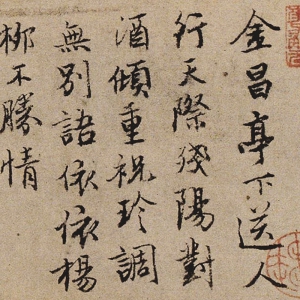 金昌亭下送人
行天際殘陽對
酒傾重祝珍調
無別語依依楊
柳不勝情